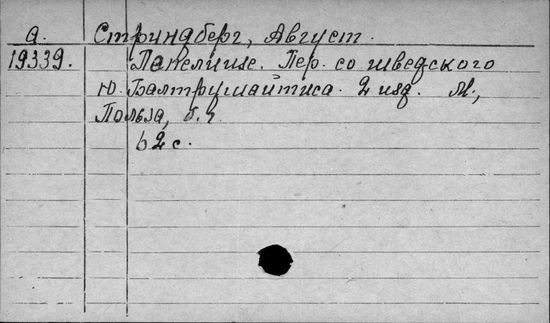 А. Стриндберг, Август.
19339. Пепелище. Пер. со шведского
Ю. Балтрушайтиса. 2 изд. М.,
Польза, б. г.
62 с.